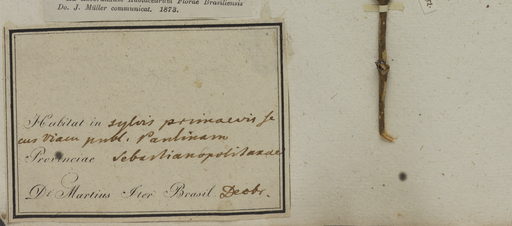 Rubiacearum Florae Brasiliensis
Do. J. Müller communicat. 1873.
Habitat in sylvis primaevis se
cus viam publ. Paulinam
Provinciae Sebastianopolitanae
Dr Martius Iter Brasil. Decbr.